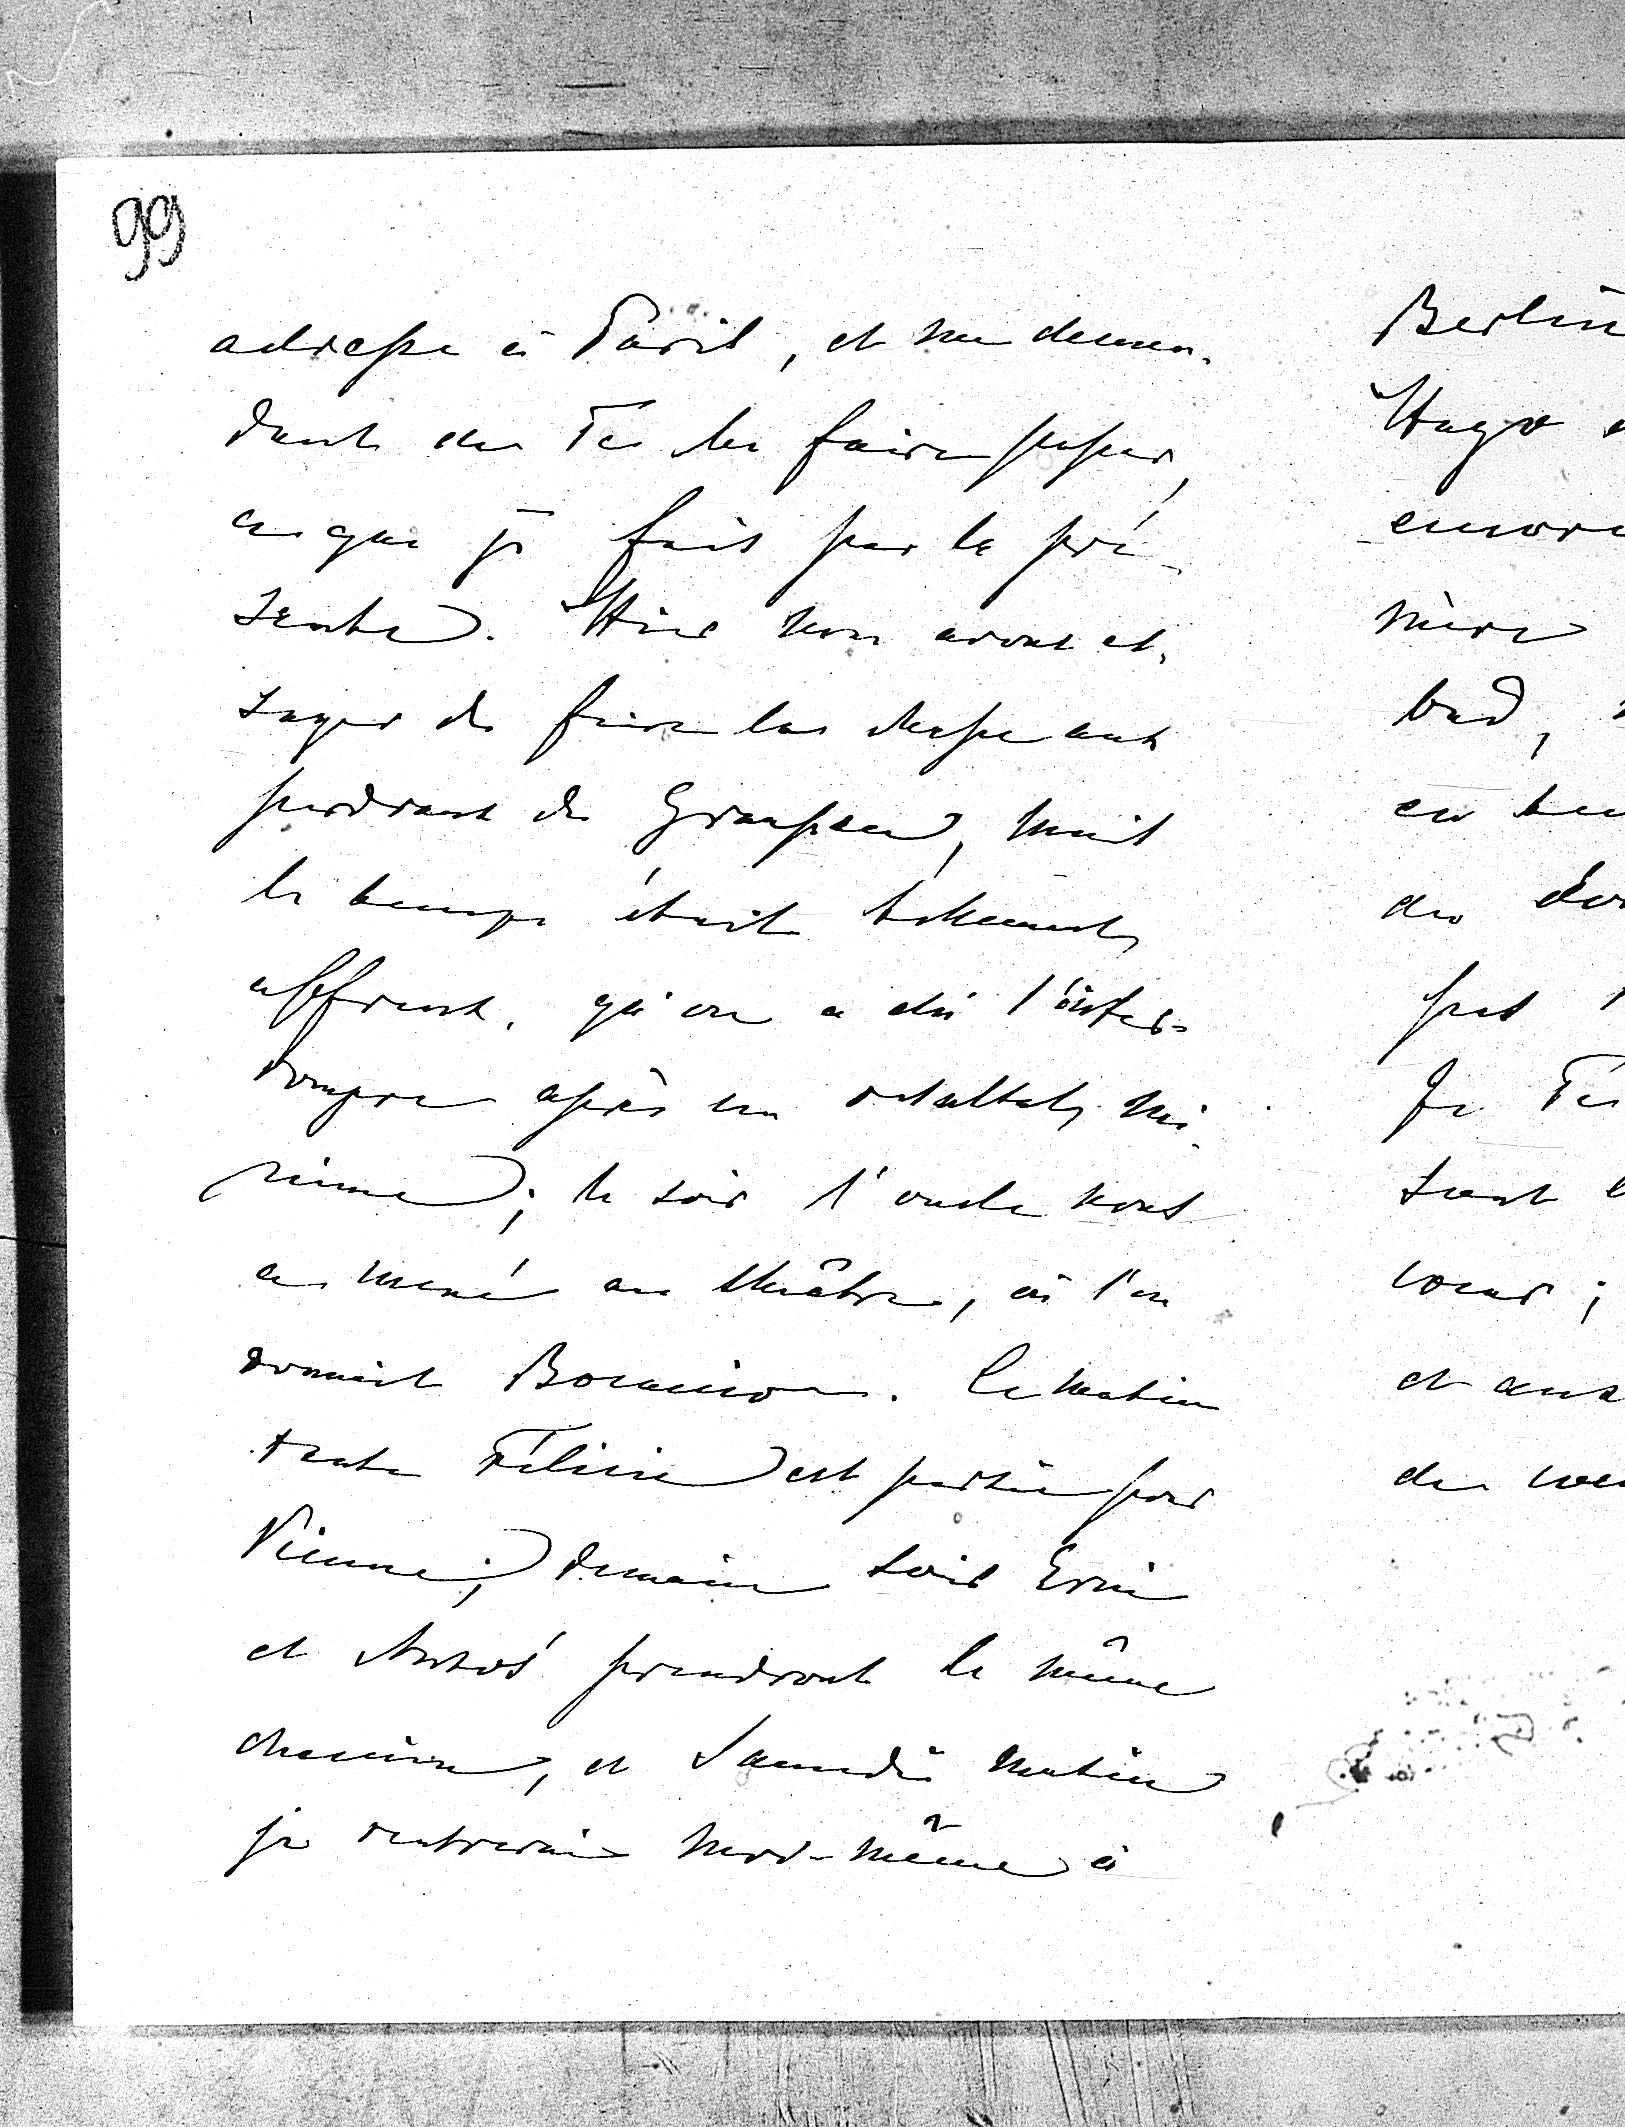 99
adresse à Paris, et me deman-
dant de Te les faire passer,
ce que je fais par la pré-
sente. Hier nous avons es-
sayer de faire la chasse aux
perdraux de Graupen, mais
le temps était tellement
affreux, qu'on a dû l'inter-
rompre après un résultat mi-
nime; le soir l'oncle nous
a mené au théâtre, où l'on
donnait Boccaccio. Ce matin
tante Félicie est partie pour
Vienne; demain soir Erni
et prendront le même
chemin, et Samedi matin
je rentrerai moi-même à
Berlin
Hugo
encore
mère
bad,
en
de
pas
Je Te
sant
coeur;
et aux
de